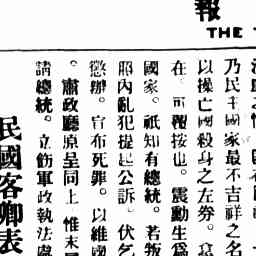 報
THE
乃民主國家最不吉祥之名
以操亡國殺身之左券。
在。可覆按也。震動生爲
國家。祇知有總統。若叛
照內亂犯提起公訴。伏乞
懲辦。宣布死罪。以維國
。肅政廳原呈同上 惟末
請總統。立飭軍政執法處
民國客卿表